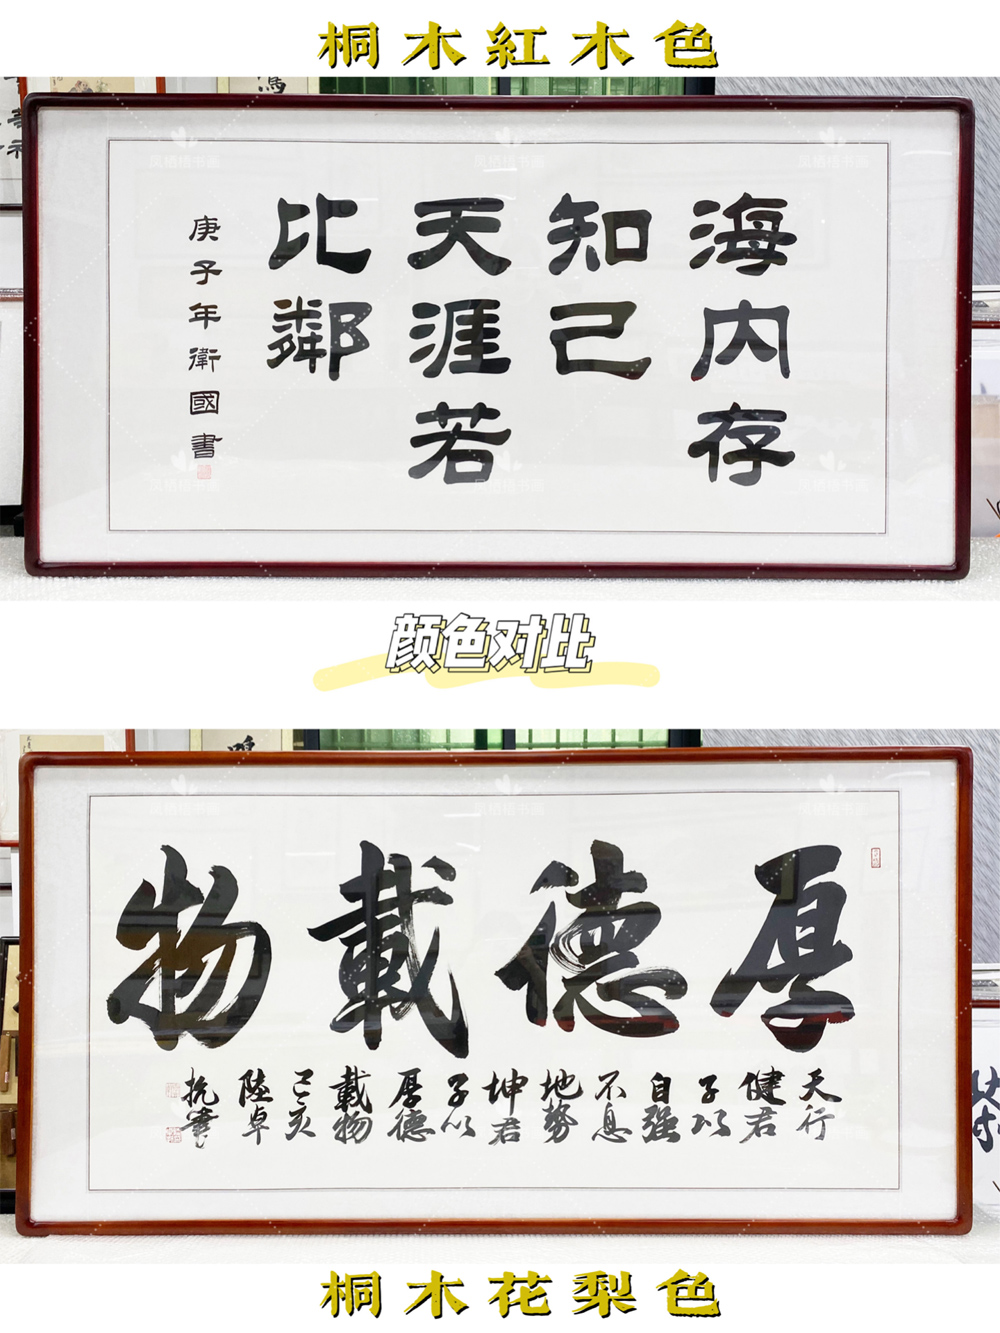 桐木紅木色
海内存
知己
天涯若
比鄰
庚子年衛國書
颜色对比
厚德載物
天行
健君
子以
自强
不息
地勢
坤君
子以
厚德
載物
己亥
陸卓
抗書
桐木花梨色
凤栖梧书画